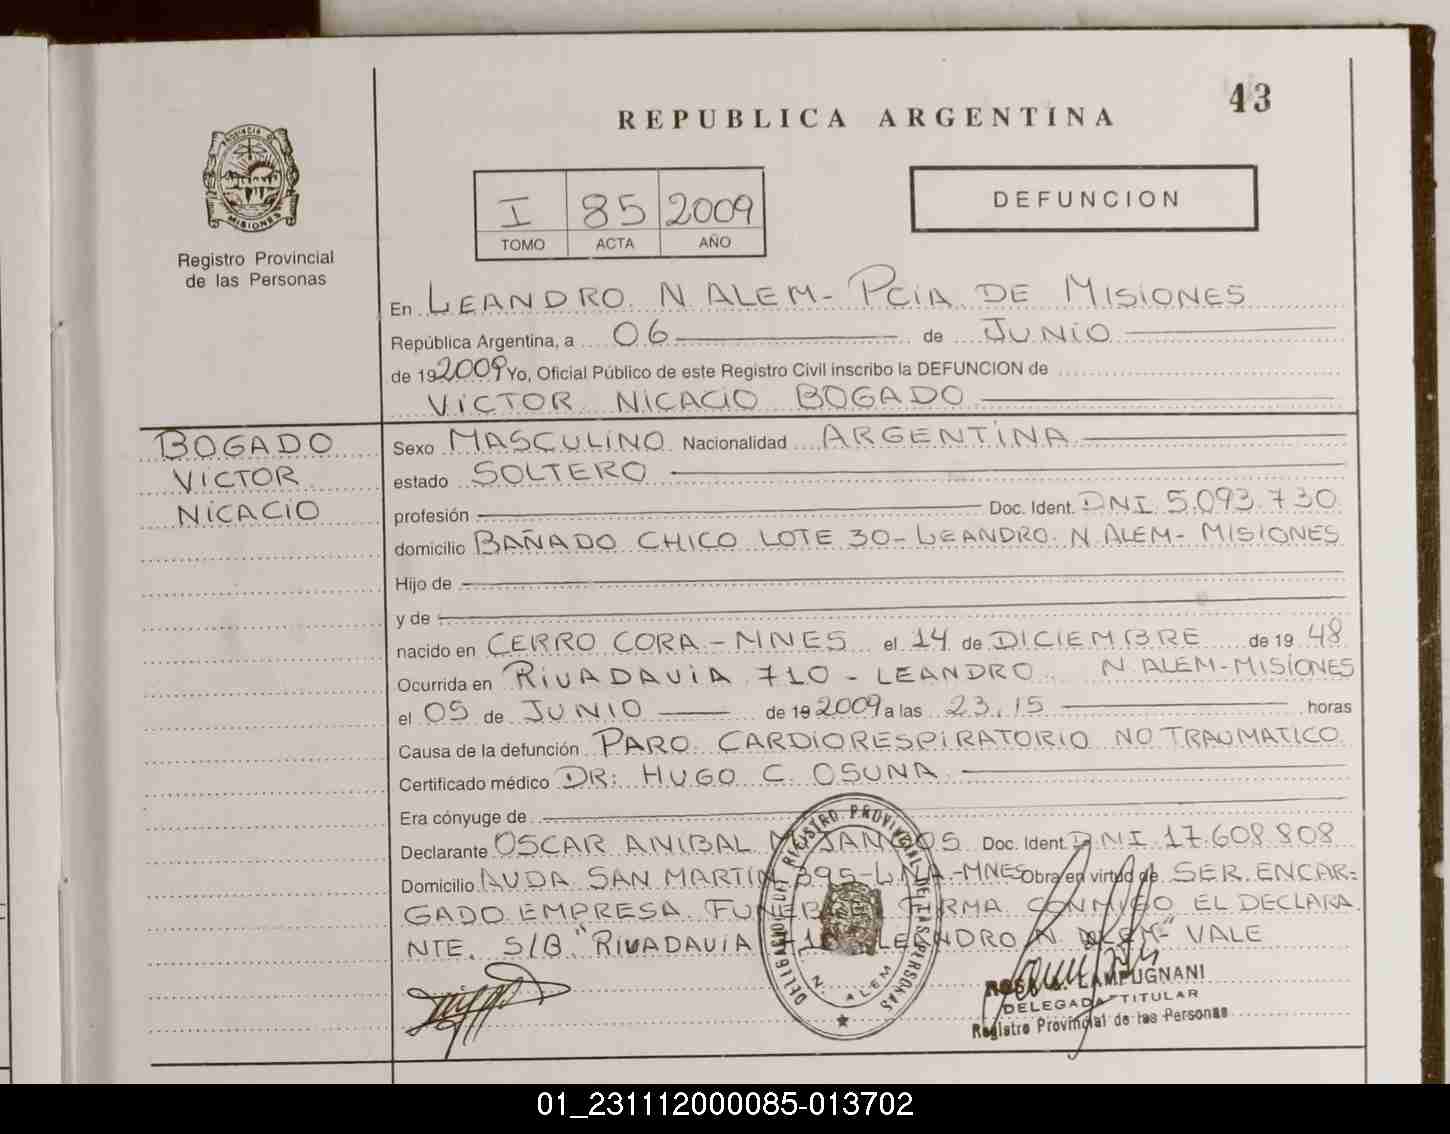 43
REPUBLICA ARGENTINA
PROVINCIA DE
MISIONES
Registro Provincial
de las Personas
I 85 2009
TOMO ACTA AÑO
DEFUNCION
En LEANDRO N ALEM - PCIA DE MISIONES
República Argentina, a 06 de JUNIO
de 192009 Yo, Oficial Público de este Registro Civil inscribo la DEFUNCION de
VICTOR NICACIO BOGADO
BOGADO
VICTOR
NICACIO
Sexo MASCULINO Nacionalidad ARGENTINA
estado SOLTERO
profesión Doc. Ident. DNI 5.093.730
domicilio BAÑADO CHICO LOTE 30 - LEANDRO N ALEM - MISIONES
Hijo de
y de
nacido en CERRO CORA - MNES el 14 de DICIEMBRE de 19 48
Ocurrida en RIVADAVIA 710 - LEANDRO N ALEM - MISIONES
el 05 de JUNIO de 192009 a las 23,15 horas
Causa de la defunción PARO CARDIORESPIRATORIO NO TRAUMATICO
Certificado médico DR: HUGO C. OSUNA
Era cónyuge de
Declarante OSCAR ANIBAL Doc. Ident. DNI 17.608.808
Domicilio AVDA SAN MARTIN 395 - L.N.A. - MNES Obra en virtud de SER ENCAR=
GADO EMPRESA FIRMA CONMIGO EL DECLARA
NTE. S/B "RIVADAVIA 710 LEANDRO N ALEM" VALE
DELEGACION DEL REGISTRO PROVINCIAL DE LAS PERSONAS
L. N. ALEM
LAMPUGNANI
DELEGADA TITULAR
Registro Provincial de las Personas
01_231112000085-013702